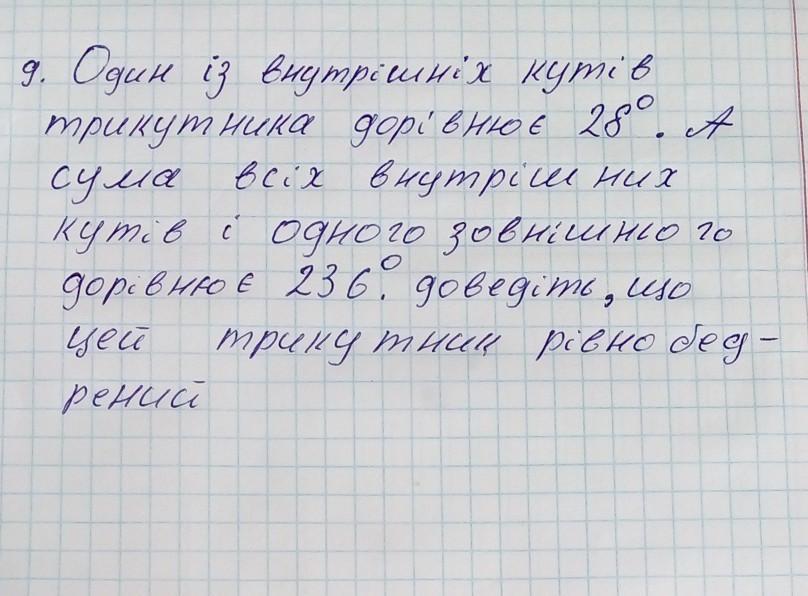 9. Один із внутрішніх кутів
трикутника дорівнює 28°. А
сума всіх внутрішних
кутів і одного зовнішнього
дорівнює 236°. доведіть, що
цей трикутник рівнобед-
рений